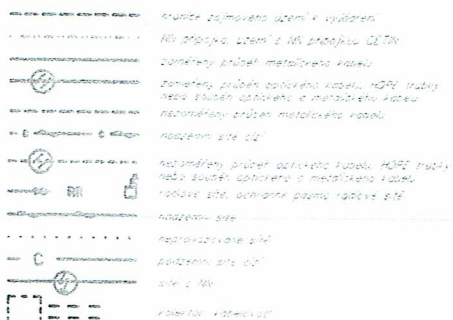 hranice zájmového území k vyjádření
NN přípojka, území s NN přípojkou CETIN
zaměřený průběh metalického kabelu
zaměřený průběh optického kabelu, HDPE trubky
nebo souběh optického a metalického kabelu
nezaměřený průběh metalického kabelu
C C nadzemní sítě cizí
nezaměřený průběh optického kabelu, HDPE trubky
nebo souběh optického a metalického kabelu
RR radiové sítě, ochranné pásmo radiové sítě
nadzemní sítě
neprokazované sítě
C podzemní sítě cizí
sítě s NN